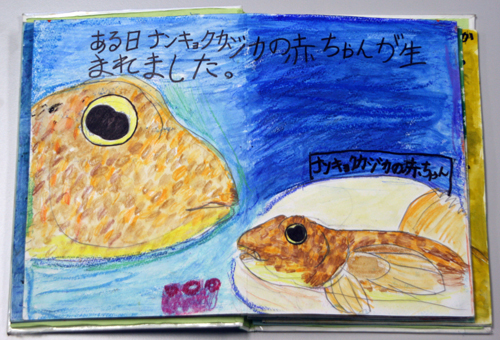 ある日ナンキョクカジカの赤ちゃんが生
まれました。
ナンキョクカジカの赤ちゃん